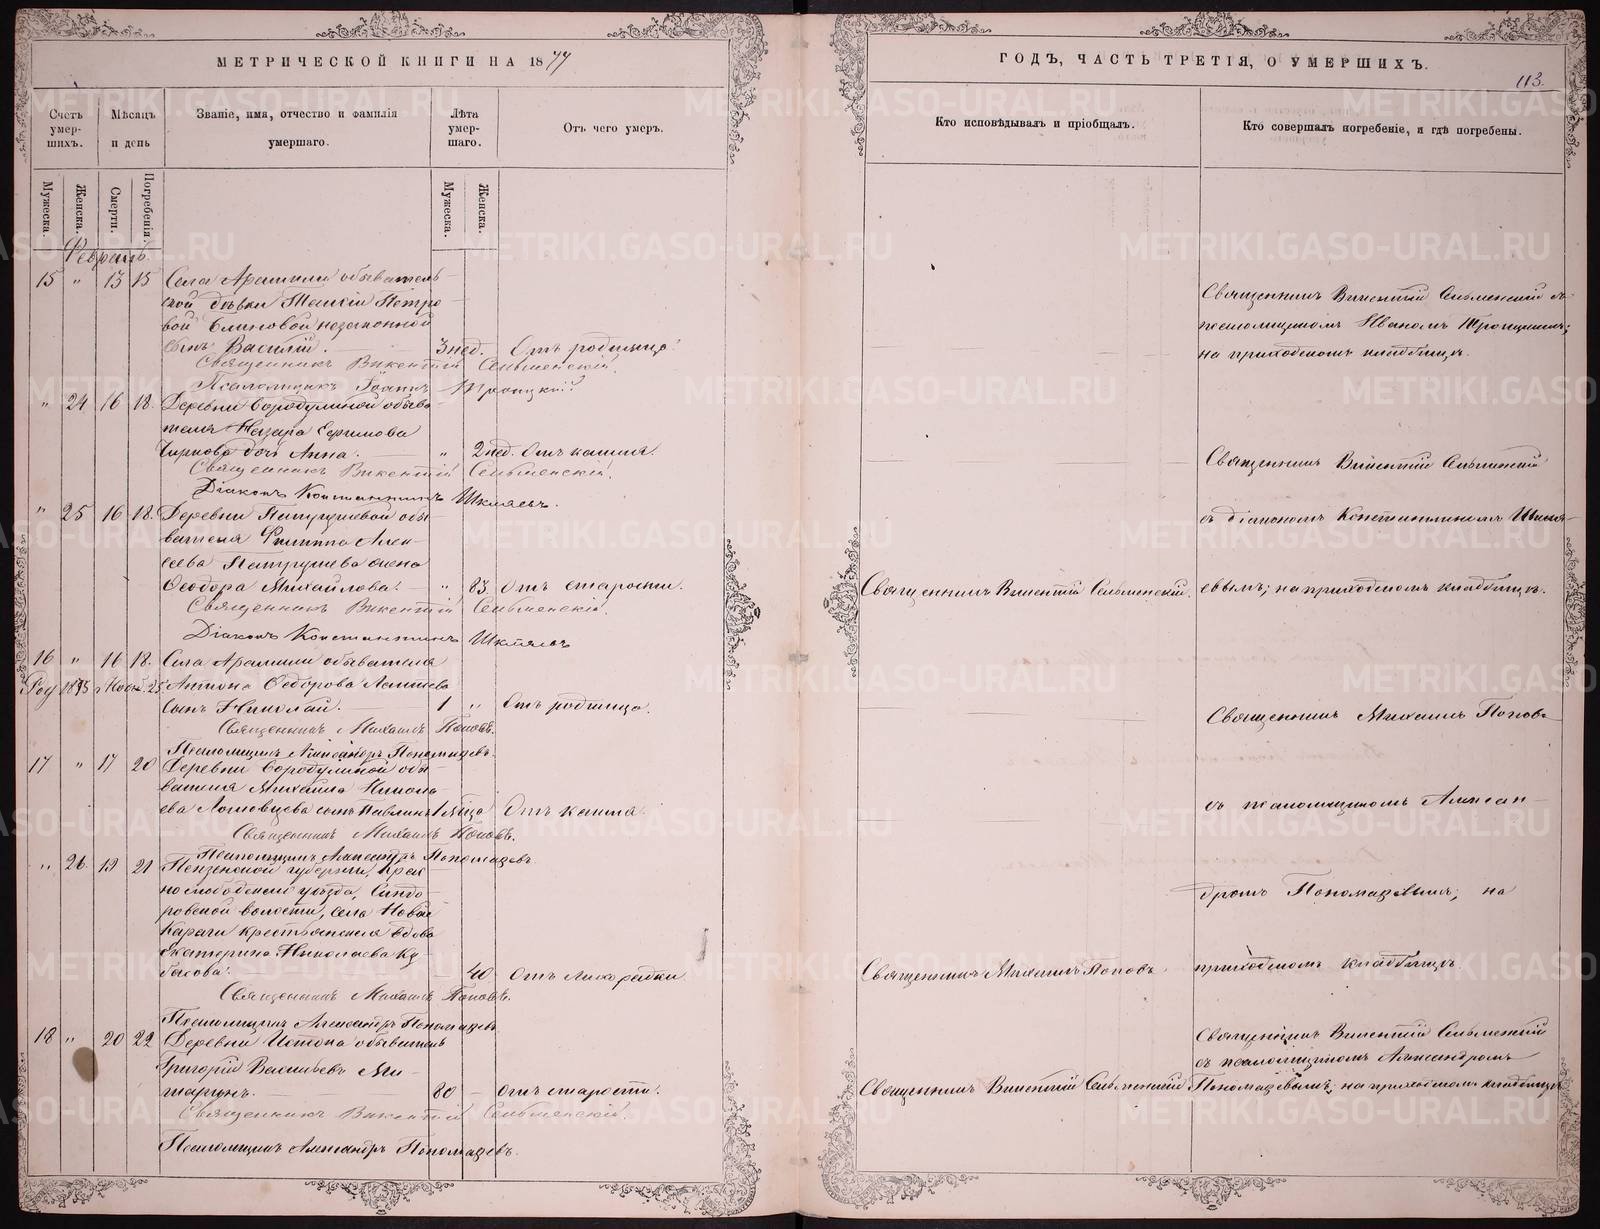 МЕТРИЧЕСКОЙ КНИГИ НА 1877
Счетъ умер-шихъ.
Мѣсяцъ и день
Званіе, имя, отчество и фамилія умершаго.
Лѣта умер-шаго.
Отъ чего умеръ.
Мужеска.
Женска.
Смерти.
Погребенія.
Мужеска.
Женска.
Февраль.
15 " 13 15 Села Арамили обыватель-
ской дѣвки Петро-
вой Блиновой незаконной
сынъ Василій. 3 нед. Отъ родимца.
Священникъ Викентій Сельменскій.
Псаломщикъ Іоаннъ Троицкій
" 24 16 18. Деревни Бородулиной обыва-
теля Назара Ефимова
дочь Анна. " 2 нед. Отъ кашля.
Священникъ Викентій Сельменскій.
Діаконъ Константинъ Шкляевъ.
" 25 16 18. Деревни Патрушевой обы-
вателя Филиппа Алек-
сеева Патрушева жена
Ѳеодора Михайлова. " 83 Отъ старости.
Священникъ Викентій Сельменскій.
Діаконъ Константинъ Шкляевъ
16 " 16 18. Села Арамили обывателя
Антона Ѳедорова
сынъ Николай. 1 " Отъ родимца.
Священникъ Михаилъ Поповъ.
Псаломщикъ Александръ Пономаревъ.
17 " 17 20 Деревни Бородулиной обы-
вателя Михаила Никола-
ева сынъ Павлинъ 1 мѣца Отъ кашля.
Священникъ Михаилъ Поповъ.
Псаломщикъ Александръ Пономаревъ.
" 26 19 21 Пензенской губерніи, Крас-
нослободскаго уѣзда, Синдо-
ровской волости, села Новой
Карьги крестьянская вдова
Екатерина Николаева
40 Отъ лихорадки
Священникъ Михаилъ Поповъ.
Псаломщикъ Александръ Пономаревъ
18 " 20 22 Деревни Истока обыватель
Григорій Васильевъ Ми-
80 Отъ старости.
Священникъ Викентій Сельменскій.
Псаломщикъ Александръ Пономаревъ.
ГОДЪ, ЧАСТЬ ТРЕТІЯ, О УМЕРШИХЪ.
113.
Кто исповѣдывалъ и пріобщалъ.
Кто совершалъ погребеніе, и гдѣ погребены.
Священникъ Викентій Сельменскій съ
псаломщикомъ Иваномъ Троицкимъ;
на приходскомъ кладбищѣ.
Священникъ Викентій Сельменскій
съ діакономъ Константиномъ Шкля-
Священникъ Викентій Сельменскій. евымъ; на приходскомъ кладбищѣ.
Священникъ Михаилъ Поповъ
съ псаломщикомъ Алексан-
дромъ Пономаревымъ; на
Священникъ Михаилъ Поповъ приходскомъ кладбищѣ.
Священникъ Викентій Сельменскій
съ псаломщикомъ Александромъ
Священникъ Викентій Сельменскій Пономаревымъ; на приходскомъ кладбищѣ
METRIKI.GASO-URAL.RU